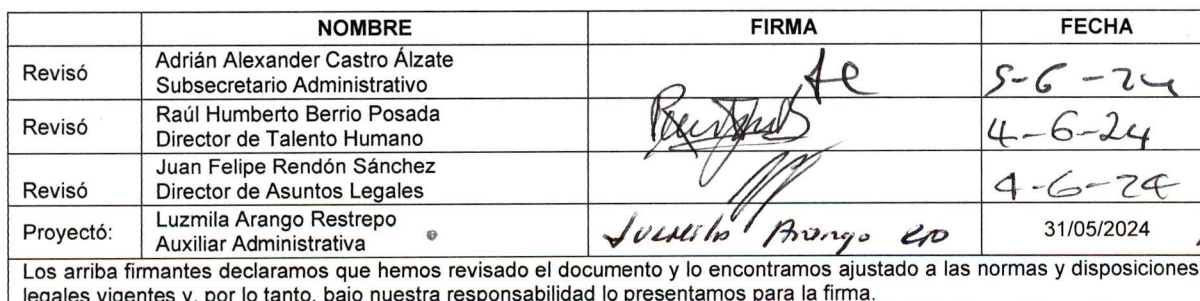 NOMBRE FIRMA FECHA
Revisó Adrián Alexander Castro Álzate
Subsecretario Administrativo 5-6-24
Revisó Raúl Humberto Berrio Posada
Director de Talento Humano 4-6-24
Revisó Juan Felipe Rendón Sánchez
Director de Asuntos Legales 4-6-24
Proyectó: Luzmila Arango Restrepo
Auxiliar Administrativa Luzmila Arango 31/05/2024
Los arriba firmantes declaramos que hemos revisado el documento y lo encontramos ajustado a las normas y disposiciones
legales vigentes y, por lo tanto, bajo nuestra responsabilidad lo presentamos para la firma.